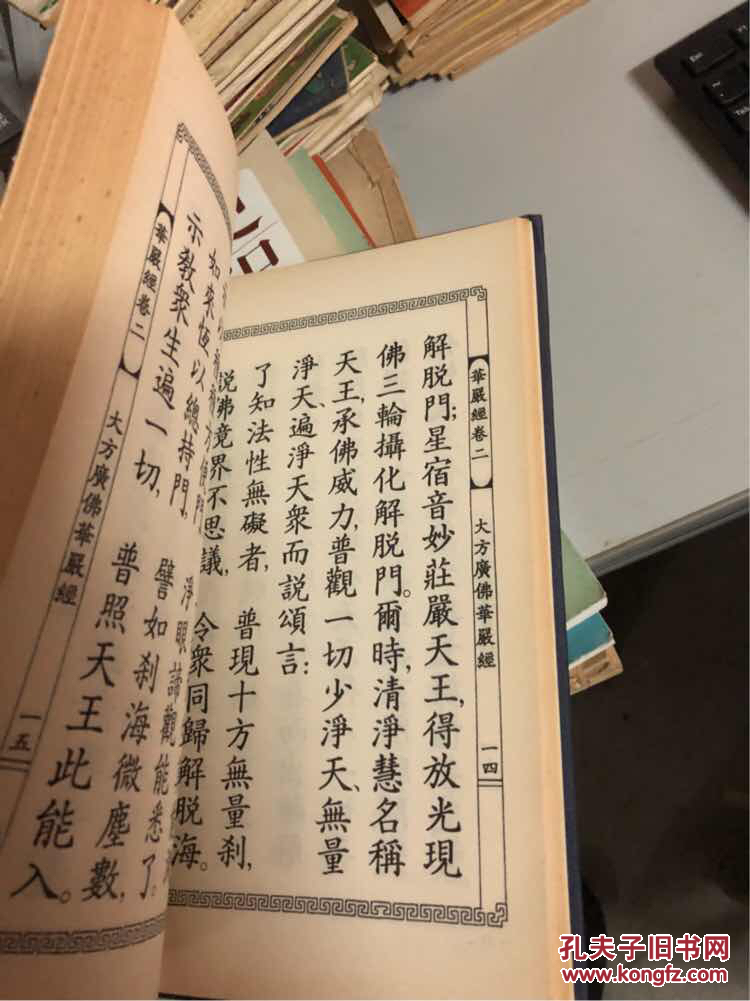 【華嚴經卷二】 大方廣佛華嚴經 一四
解脫門;星宿音妙莊嚴天王,得放光現
佛三輪攝化解脫門。爾時,清淨慧名稱
天王,承佛威力,普觀一切少淨天、無量
淨天、遍淨天眾而說頌言:
了知法性無礙者, 普現十方無量剎,
說佛境界不思議, 令眾同歸解脫海。
方便門, 淨眼諦觀能悉了。
如來恆以總持門, 譬如剎海微塵數,
示教眾生遍一切, 普照天王此能入。
【華嚴經卷二】 大方廣佛華嚴經 一五
孔夫子旧书网
www.kongfz.com